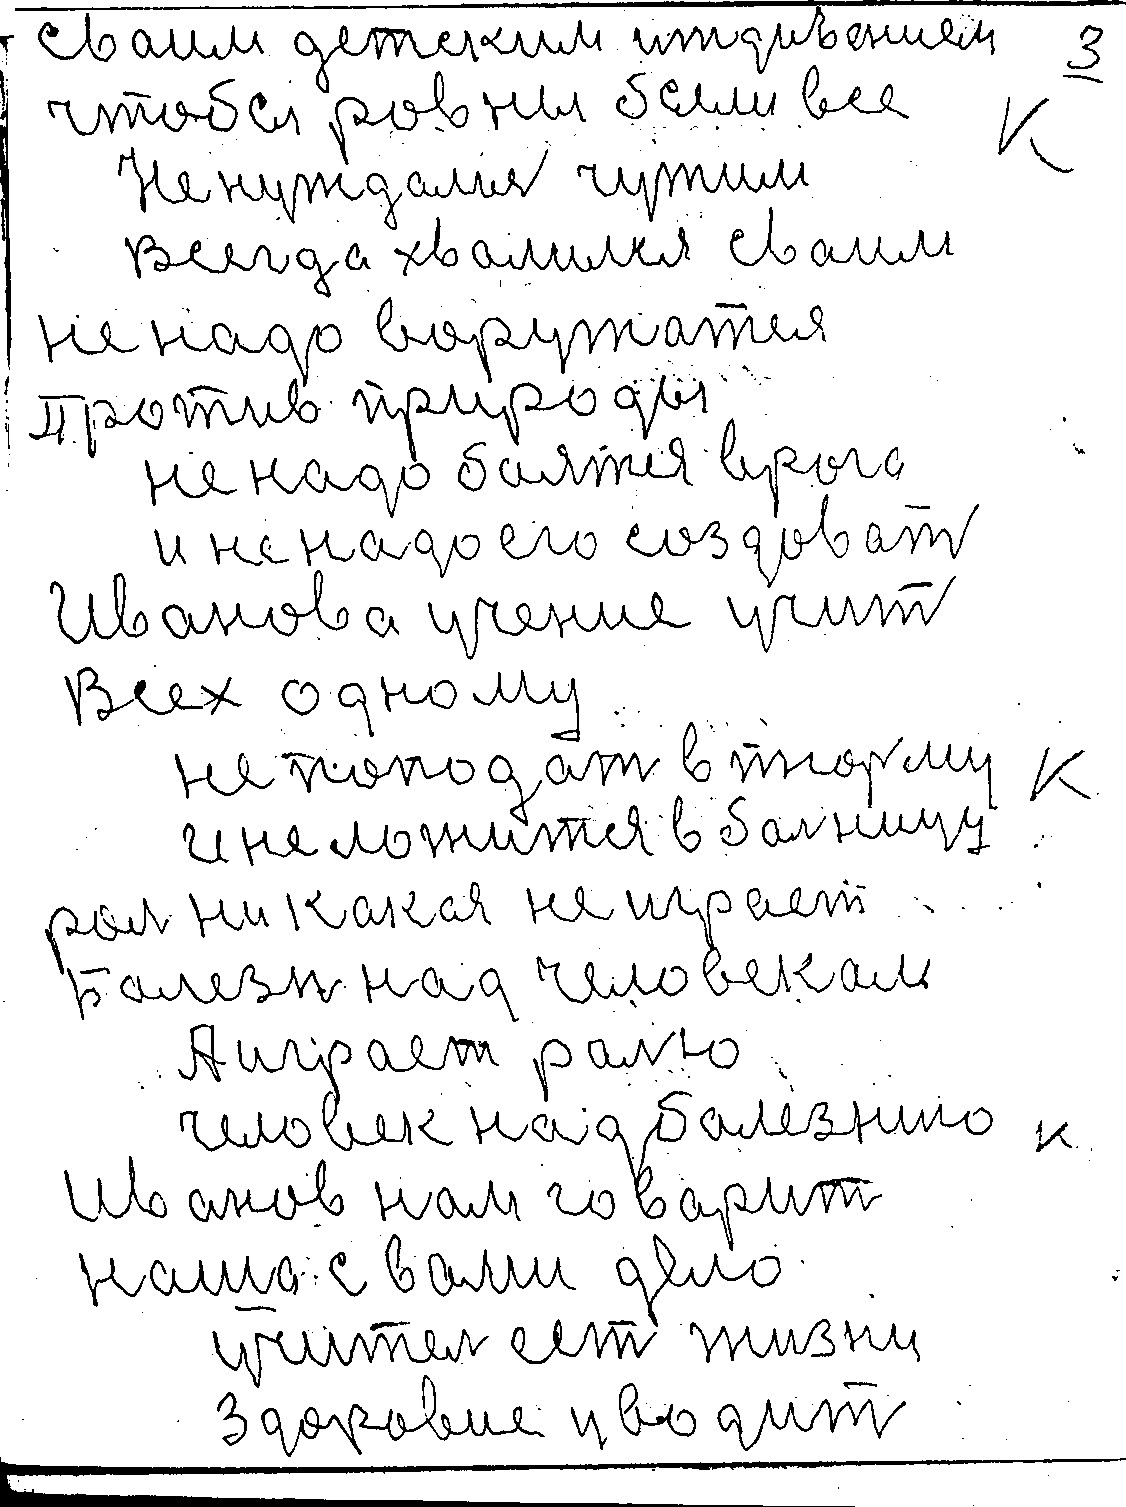 сваим детским итдивением 3
чтобы ровни были все К
Не нуждался чужим
Всегда хвалился сваим
не надо воружатся
против природы
не надо баятся врага
и не надо его создоват
Иванова учение учит
Всех одному
не поподат в тюрму К
и не ложится в балницу
рол никакая не играет
Болезн над человекам
А играет ралю
человек над балезнию к
Иванов нам говарит
наша с вами дело
учител ест жизни
Здоровие уводит